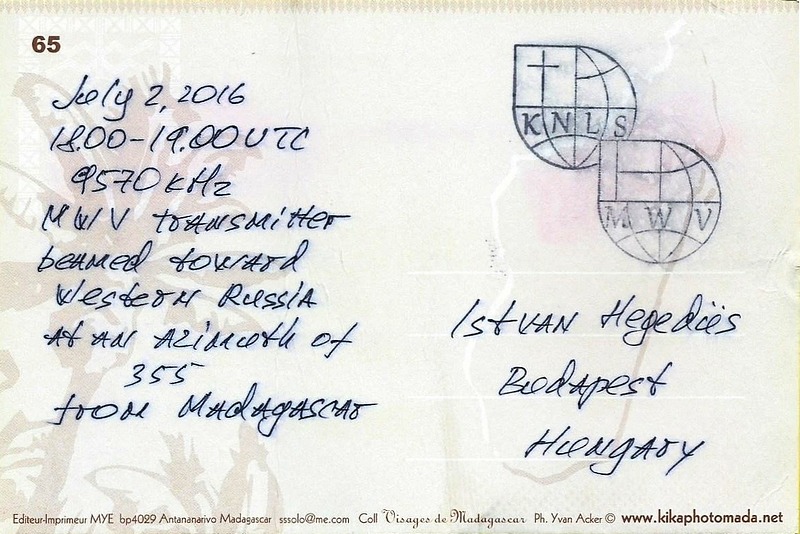 65
July 2, 2016
18.00-19.00 UTC
9570 kHz
MWV transmitter
beamed toward
Western Russia
at an azimuth of
355
from Madagascar
KNLS
MWV
Istvan Hegedüs
Budapest
Hungary
Editeur-Imprimeur MYE bp4029 Antananarivo Madagascar sssolo@me.com Coll Visages de Madagascar Ph. Yvan Acker © www.kikaphotomada.net